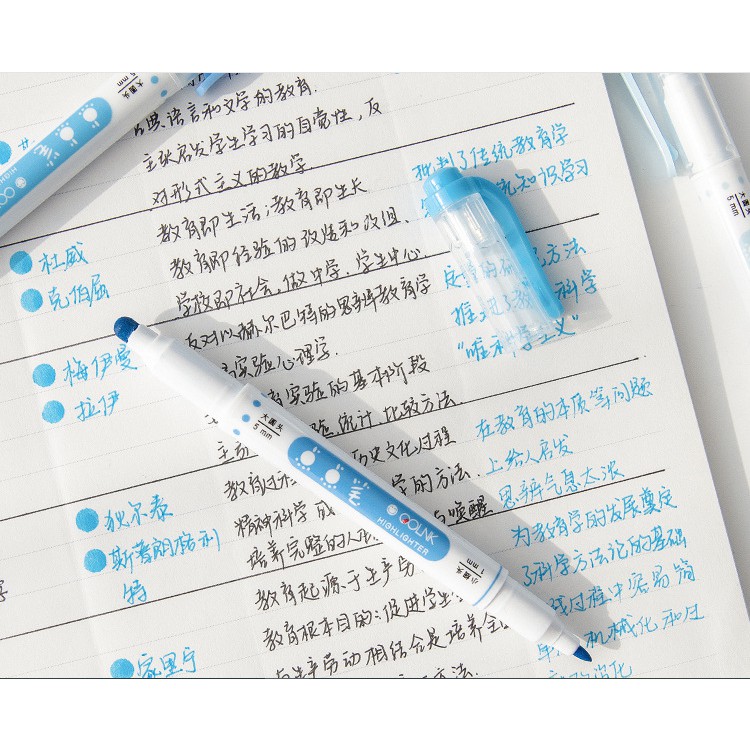 典语言和文学的教育.
主张启发学生学习的自觉性，反
对形式主义的教学
教育即生活；教育即生长
教育即经验的改造和改组.
学校即社会.做中学.学生中心.
反对以赫尔巴特的思辨教育学
实验心理学.
育实验的基本阶段
验统计.比较方法.
历史文化过程
教育过程
学的方法.
精神科学
与唤醒
培养完整的人
教育起源于生产劳
教育根本目的：促进学生
与生产劳动相结合是培养全
方法.
杜威
克伯屈
梅伊曼
拉伊
狄尔泰
斯普朗格利
特
家里宁
批判了传统教育学
知识学习
方法
推 科学
"唯科学主义"
在教育的本质等问题
上给人启发
思辨气息太浓
为教育学的发展奠定
了科学方法论的基础
过程中容易简
单 机械化和过
大圆头
5 mm
QOLINK
HIGHLIGHTER
小圆头
1 mm
大圆头
5 mm
QOLINK
HIGHLIGHTER
大圆头
5 mm